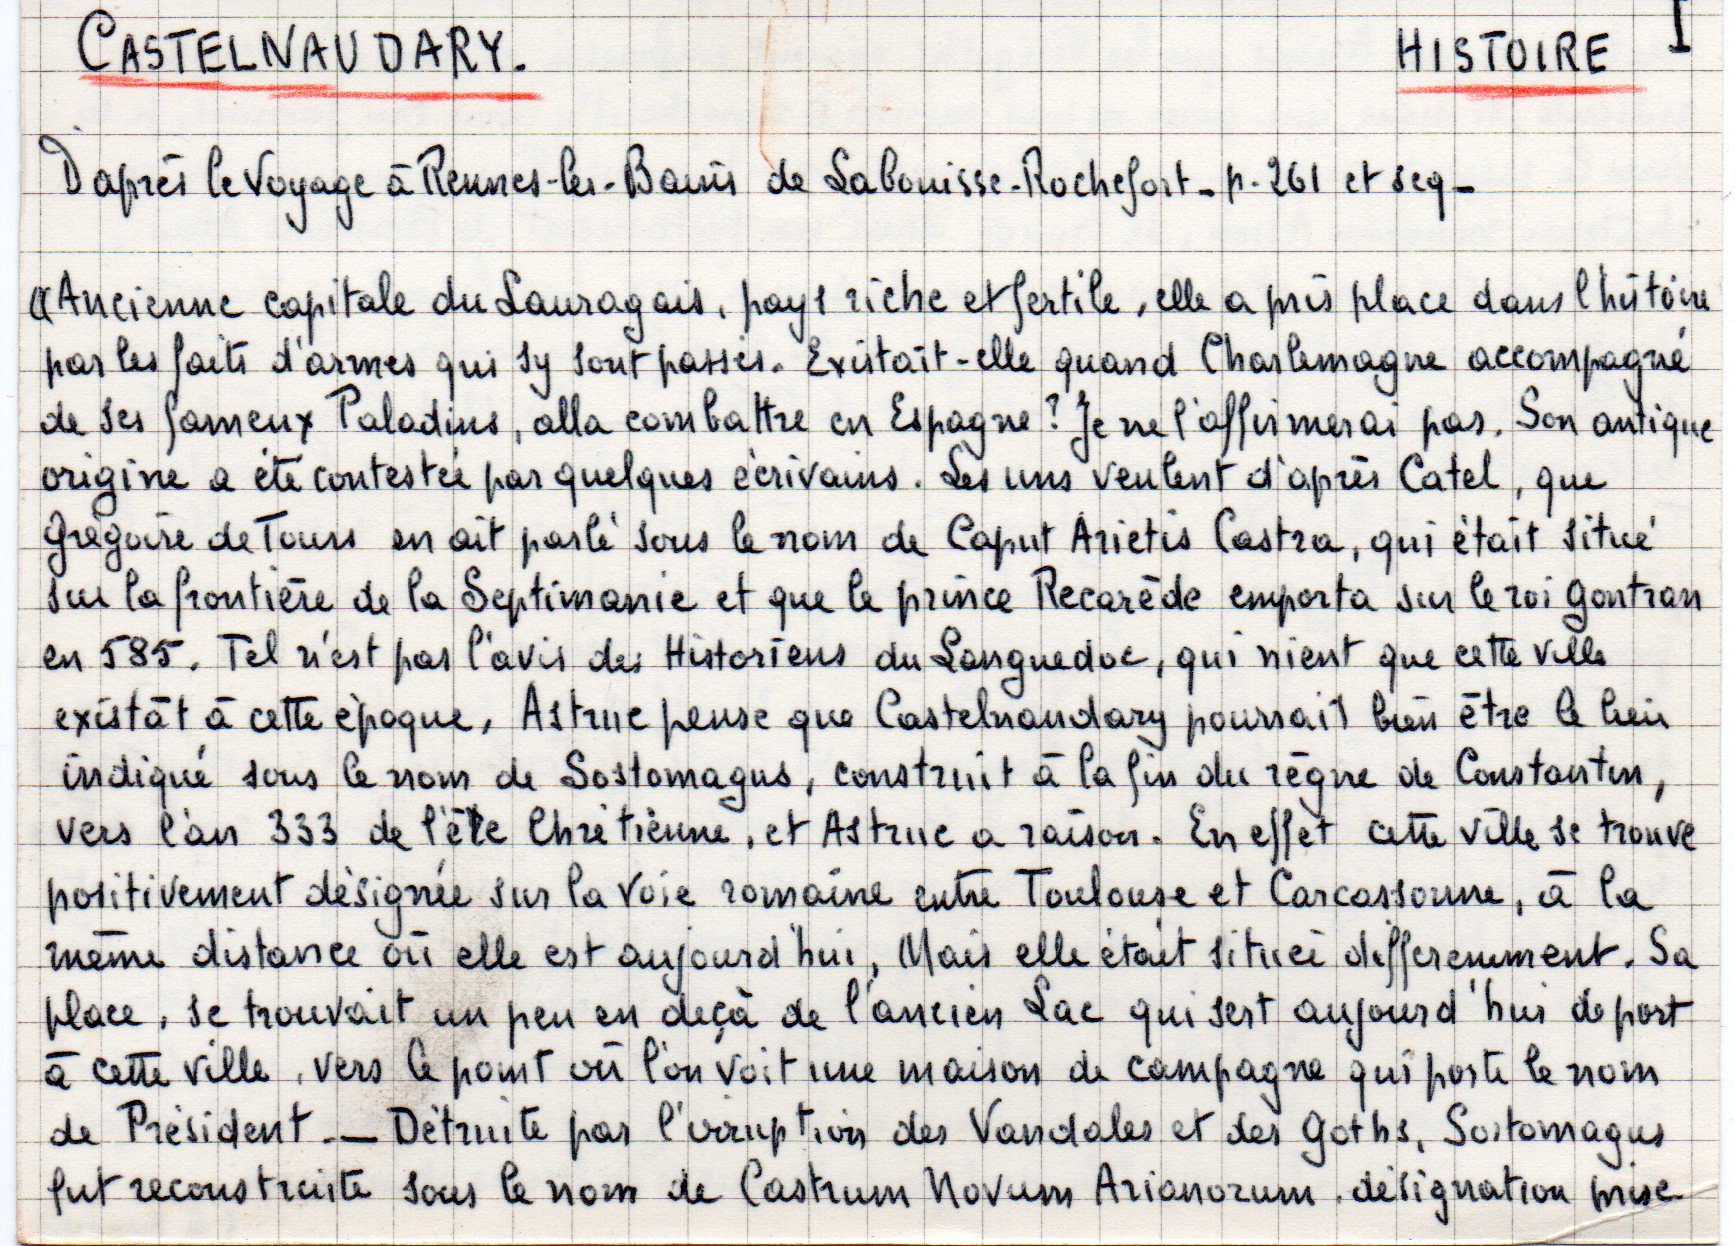 CASTELNAUDARY.
HISTOIRE I
D'après le Voyage à Rennes-les-Bains de Labouisse-Rochefort - p. 261 et seq -
« Ancienne capitale du Lauragais, pays riche et fertile, elle a pris place dans l'histoire
par les faits d'armes qui s'y sont passés. Existait-elle quand Charlemagne accompagné
de ses fameux Paladins, alla combattre en Espagne ? Je ne l'affirmerai pas. Son antique
origine a été contestée par quelques écrivains. Les uns veulent d'après Catel, que
Grégoire de Tours en ait parlé sous le nom de Caput Arietis Castra, qui était situé
sur la frontière de la Septimanie et que le prince Recarède emporta sur le roi Gontran
en 585. Tel n'est pas l'avis des Historiens du Languedoc, qui nient que cette ville
existât à cette époque, Astruc pense que Castelnaudary pourrait bien être le lieu
indiqué sous le nom de Sostomagus, construit à la fin du règne de Constantin,
vers l'an 333 de l'ère Chrétienne, et Astruc a raison. En effet cette ville se trouve
positivement désignée sur la voie romaine entre Toulouse et Carcassonne, à la
même distance où elle est aujourd'hui, Mais elle était située différemment. Sa
place, se trouvait un peu en deçà de l'ancien Lac qui sert aujourd'hui de port
à cette ville, vers le point où l'on voit une maison de campagne qui porte le nom
de Président. — Détruite par l'irruption des Vandales et des Goths, Sostomagus
fut reconstruite sous le nom de Castrum Novum Arianorum, désignation prise